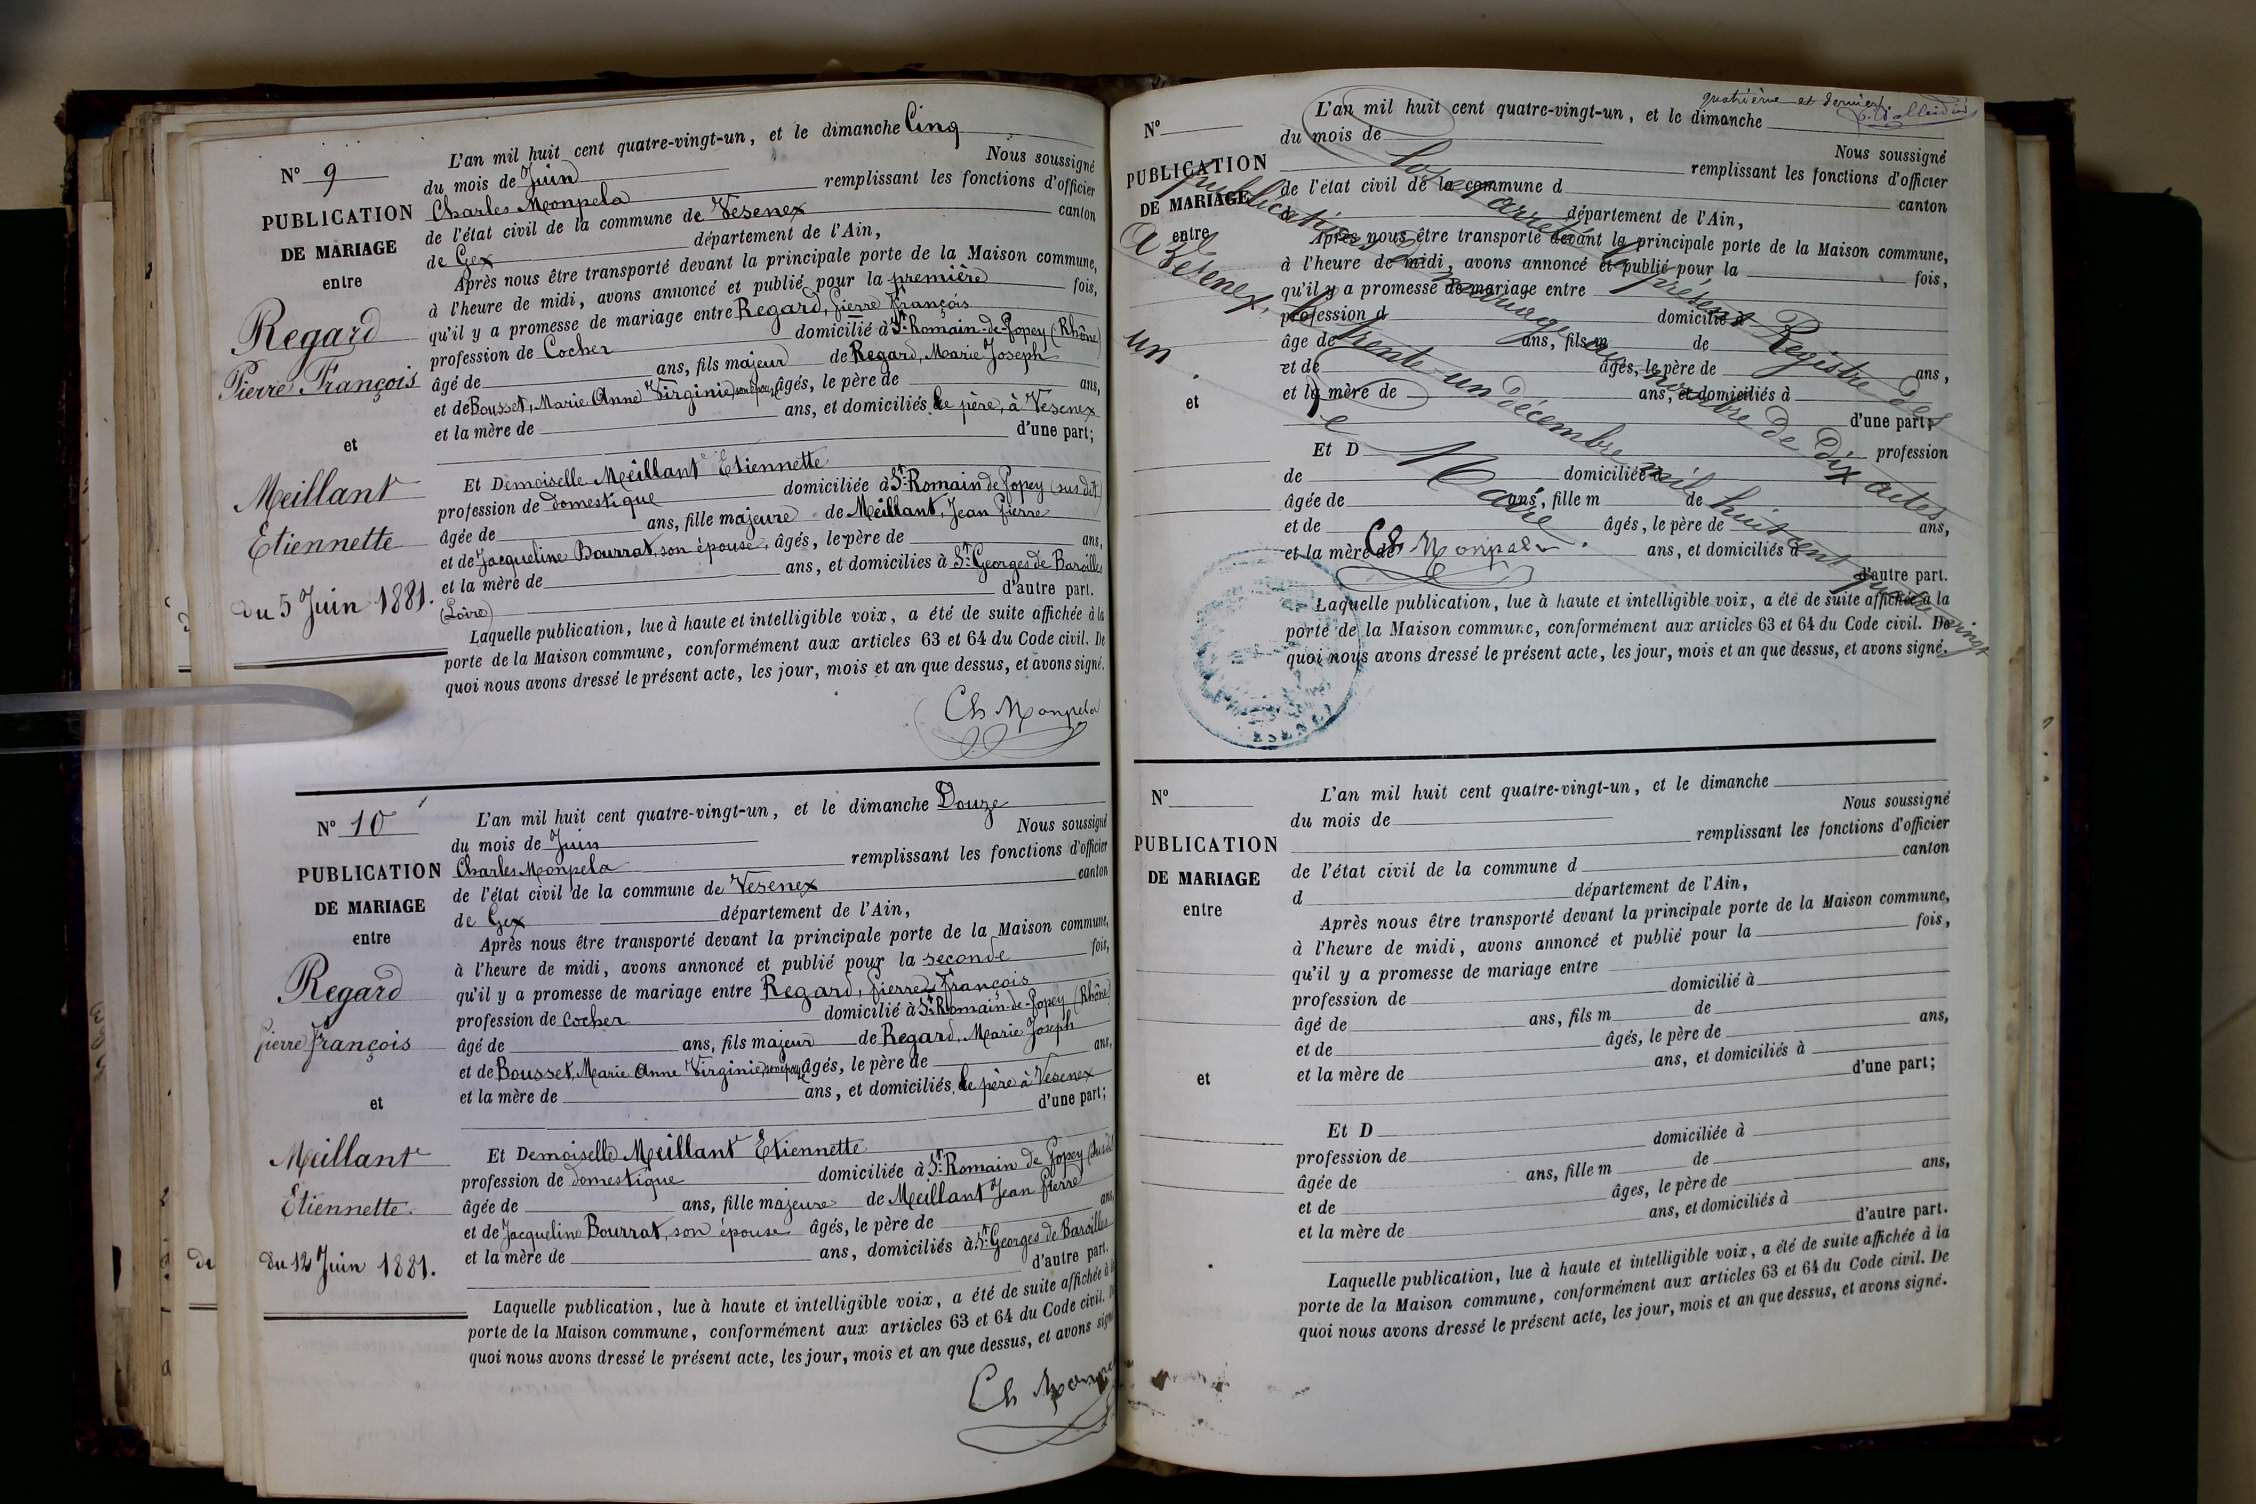 N° 9
PUBLICATION
DE MARIAGE
entre
Regard
Pierre François
et
Meillant
Etiennette
du 5 Juin 1881.
L'an mil huit cent quatre-vingt-un, et le dimanche Cinq
du mois de Juin Nous soussigné
Charles Monpela remplissant les fonctions d'officier
de l'état civil de la commune de Vesenex canton
de Gex département de l'Ain,
Après nous être transporté devant la principale porte de la Maison commune,
à l'heure de midi, avons annoncé et publié pour la première fois,
qu'il y a promesse de mariage entre Regard, Pierre François
profession de Cocher domicilié à St. Romain-de-Popey (Rhône)
âgé de ans, fils majeur de Regard, Marie Joseph
et de Bousset, Marie Anne Virginie, son épouse, âgés, le père de ans,
et la mère de ans, et domiciliés, le père, à Vesenex
d'une part;
Et Demoiselle Meillant Etiennette
profession de domestique domiciliée à St. Romain de Popey (sus dit)
âgée de ans, fille majeure de Meillant, Jean Pierre
et de Jacqueline Bourrat, son épouse, âgés, le père de ans,
et la mère de ans, et domiciliés à St. Georges de Baroilles
(Loire) d'autre part.
Laquelle publication, lue à haute et intelligible voix, a été de suite affichée à la
porte de la Maison commune, conformément aux articles 63 et 64 du Code civil. De
quoi nous avons dressé le présent acte, les jour, mois et an que dessus, et avons signé.
Ch Monpela
N° 10
PUBLICATION
DE MARIAGE
entre
Regard
Pierre François
et
Meillant
Etiennette.
du 12 Juin 1881.
L'an mil huit cent quatre-vingt-un, et le dimanche Douze
du mois de Juin Nous soussigné
Charles Monpela remplissant les fonctions d'officier
de l'état civil de la commune de Vesenex canton
de Gex département de l'Ain,
Après nous être transporté devant la principale porte de la Maison commune,
à l'heure de midi, avons annoncé et publié pour la seconde fois,
qu'il y a promesse de mariage entre Regard, Pierre François
profession de cocher domicilié à St. Romain-de-Popey (Rhône)
âgé de ans, fils majeur de Regard, Marie Joseph
et de Bousset, Marie Anne Virginie, son épouse, âgés, le père de ans,
et la mère de ans, et domiciliés, le père à Vesenex
d'une part;
Et Demoiselle Meillant Etiennette
profession de domestique domiciliée à St. Romain de Popey (sus dit
âgée de ans, fille majeure de Meillant Jean Pierre
et de Jacqueline Bourrat, son épouse âgés, le père de ans,
et la mère de ans, domiciliés à St. Georges de Baroilles
d'autre part.
Laquelle publication, lue à haute et intelligible voix, a été de suite affichée à la
porte de la Maison commune, conformément aux articles 63 et 64 du Code civil. D
quoi nous avons dressé le présent acte, les jour, mois et an que dessus, et avons sign
Ch Monpe
quatrième et dernier
N°
PUBLICATION
DE MARIAGE
entre
et
L'an mil huit cent quatre-vingt-un, et le dimanche
du mois de Nous soussigné
remplissant les fonctions d'officier
de l'état civil de la commune d canton
d département de l'Ain,
Après nous être transporté devant la principale porte de la Maison commune,
à l'heure de midi, avons annoncé et publié pour la fois,
qu'il y a promesse de mariage entre
profession d domicilié à
âgé de ans, fils m de
et de âgés, le père de ans,
et la mère de ans, et domiciliés à
d'une part;
Et D profession
de domiciliée à
âgée de ans, fille m de
et de âgés, le père de ans,
et la mère de ans, et domiciliés à
d'autre part.
Laquelle publication, lue à haute et intelligible voix, a été de suite affichée à la
porte de la Maison commune, conformément aux articles 63 et 64 du Code civil. De
quoi nous avons dressé le présent acte, les jour, mois et an que dessus, et avons signé.
Clos et arrêté le présent Registre des
publications de mariage au nombre de Dix actes
A Vesenex, le trente-un décembre mil huit cent quatre vingt
un.
Le Maire
Ch Monpela.
N°
PUBLICATION
DE MARIAGE
entre
et
L'an mil huit cent quatre-vingt-un, et le dimanche
du mois de Nous soussigné
remplissant les fonctions d'officier
de l'état civil de la commune d canton
d département de l'Ain,
Après nous être transporté devant la principale porte de la Maison commune,
à l'heure de midi, avons annoncé et publié pour la fois,
qu'il y a promesse de mariage entre
profession de domicilié à
âgé de ans, fils m de
et de âgés, le père de ans,
et la mère de ans, et domiciliés à
d'une part;
Et D
profession de domiciliée à
âgée de ans, fille m de
et de âges, le père de ans,
et la mère de ans, et domiciliés à
d'autre part.
Laquelle publication, lue à haute et intelligible voix, a été de suite affichée à la
porte de la Maison commune, conformément aux articles 63 et 64 du Code civil. De
quoi nous avons dressé le présent acte, les jour, mois et an que dessus, et avons signé.